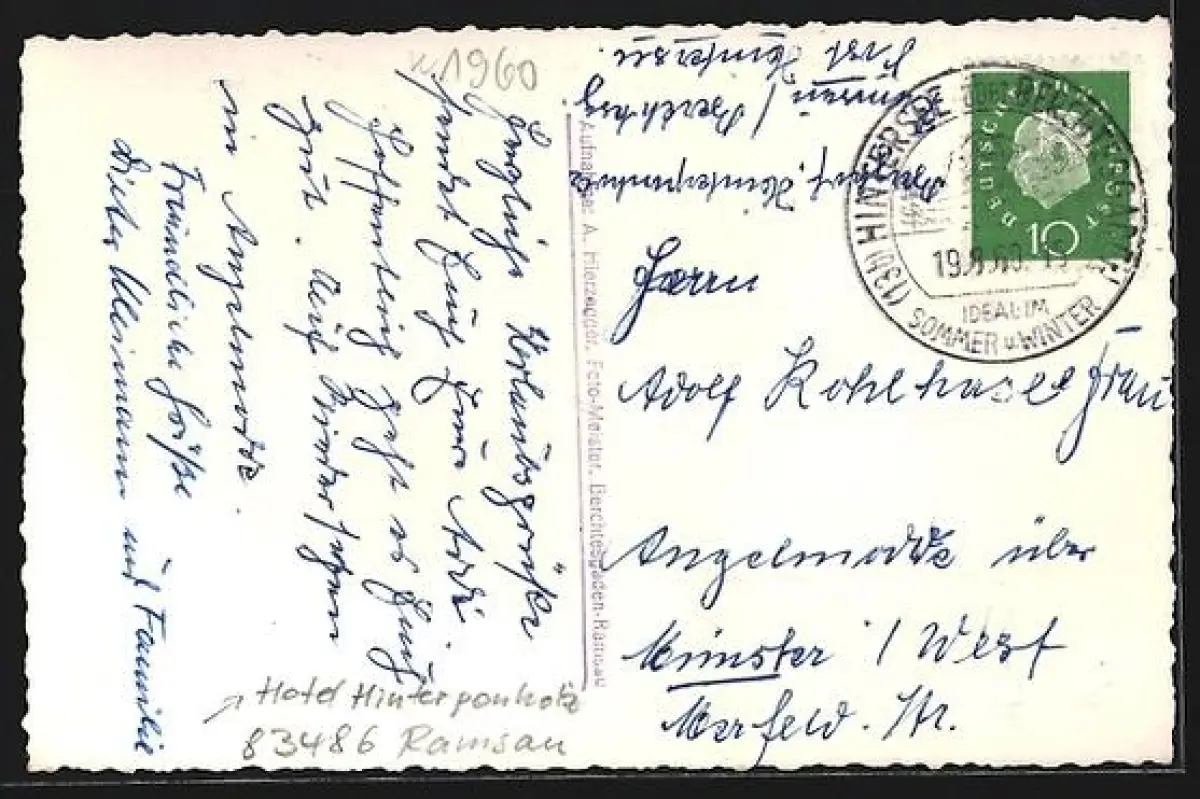 1960
Herzliche Urlaubsgrüße
sendet Euch Eure Ardi.
Hoffentlich geht es Euch
gut. Auf Wiedersehen
in Angelmodde.
Freundliche Grüße
Dieter Kleimann und Familie
Hotel Hinterponholz
83486 Ramsau
Aufnahme: A. Hierzegger, Foto-Meister, Berchtesgaden-Ramsau
Hinterponholz
Ramsau / Berchtesg
Post Hintersee
DEUTSCHE BUNDESPOST
10
(13b) HINTERSEE
ÜBER BERCHTESGADEN
19.8.60
IDEAL IM
SOMMER u. WINTER
Herrn
Adolf Kohlhase Frau
Angelmodde über
Münster / Westf
Merfeld. Str.